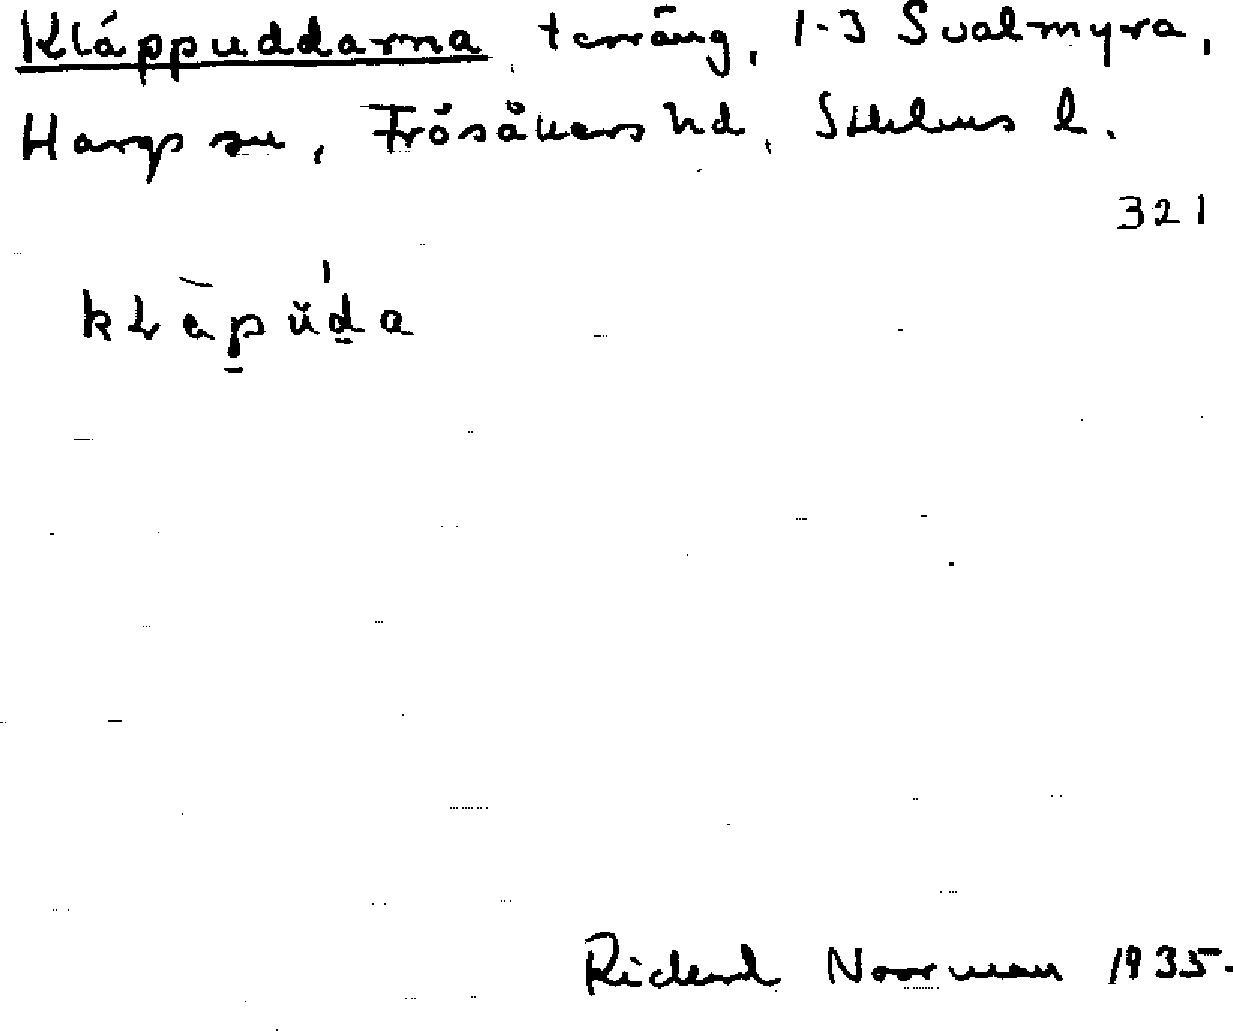 Kläppuddarna, terräng, 1-3 Svalmyra,
Hargs sn, Frösåkers hd, Sthlms l.
321
klapŭda
Rickard Noorman 1935.